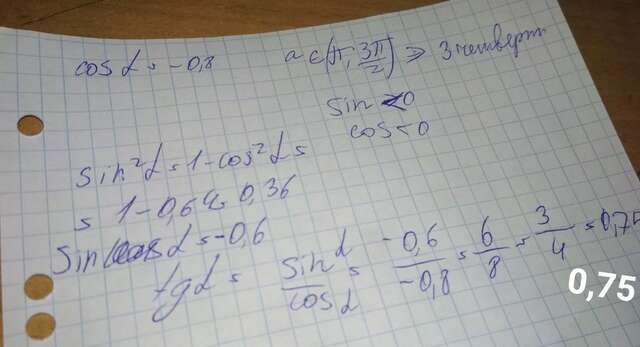 cos α = -0,8 a ∈ (π; 3π/2) ⇒ 3 четверть
sin < 0
cos < 0
sin²α = 1 - cos²α =
= 1 - 0,64 = 0,36
sin α = -0,6
tg α = sin α / cos α = -0,6 / -0,8 = 6/8 = 3/4 = 0,75
0,75